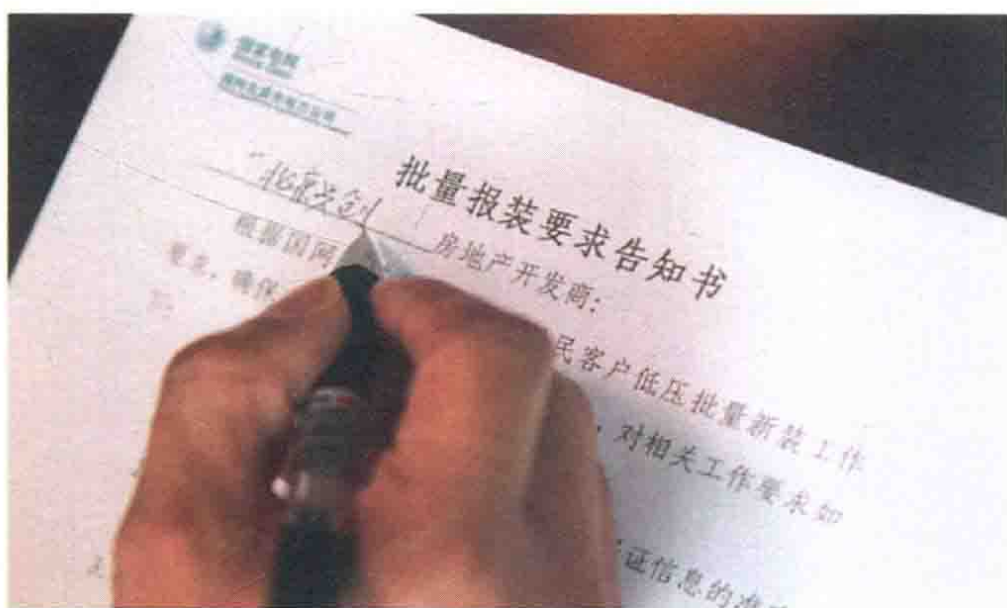 国家电网
批量报装要求告知书
房地产开发商：
根据国网 民客户低压批量新装工作
要求，确保 ，对相关工作要求如
下：
证信息的准